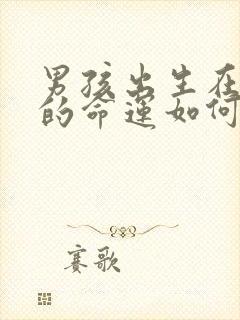 男孩出生在
的命运如何
赛歌